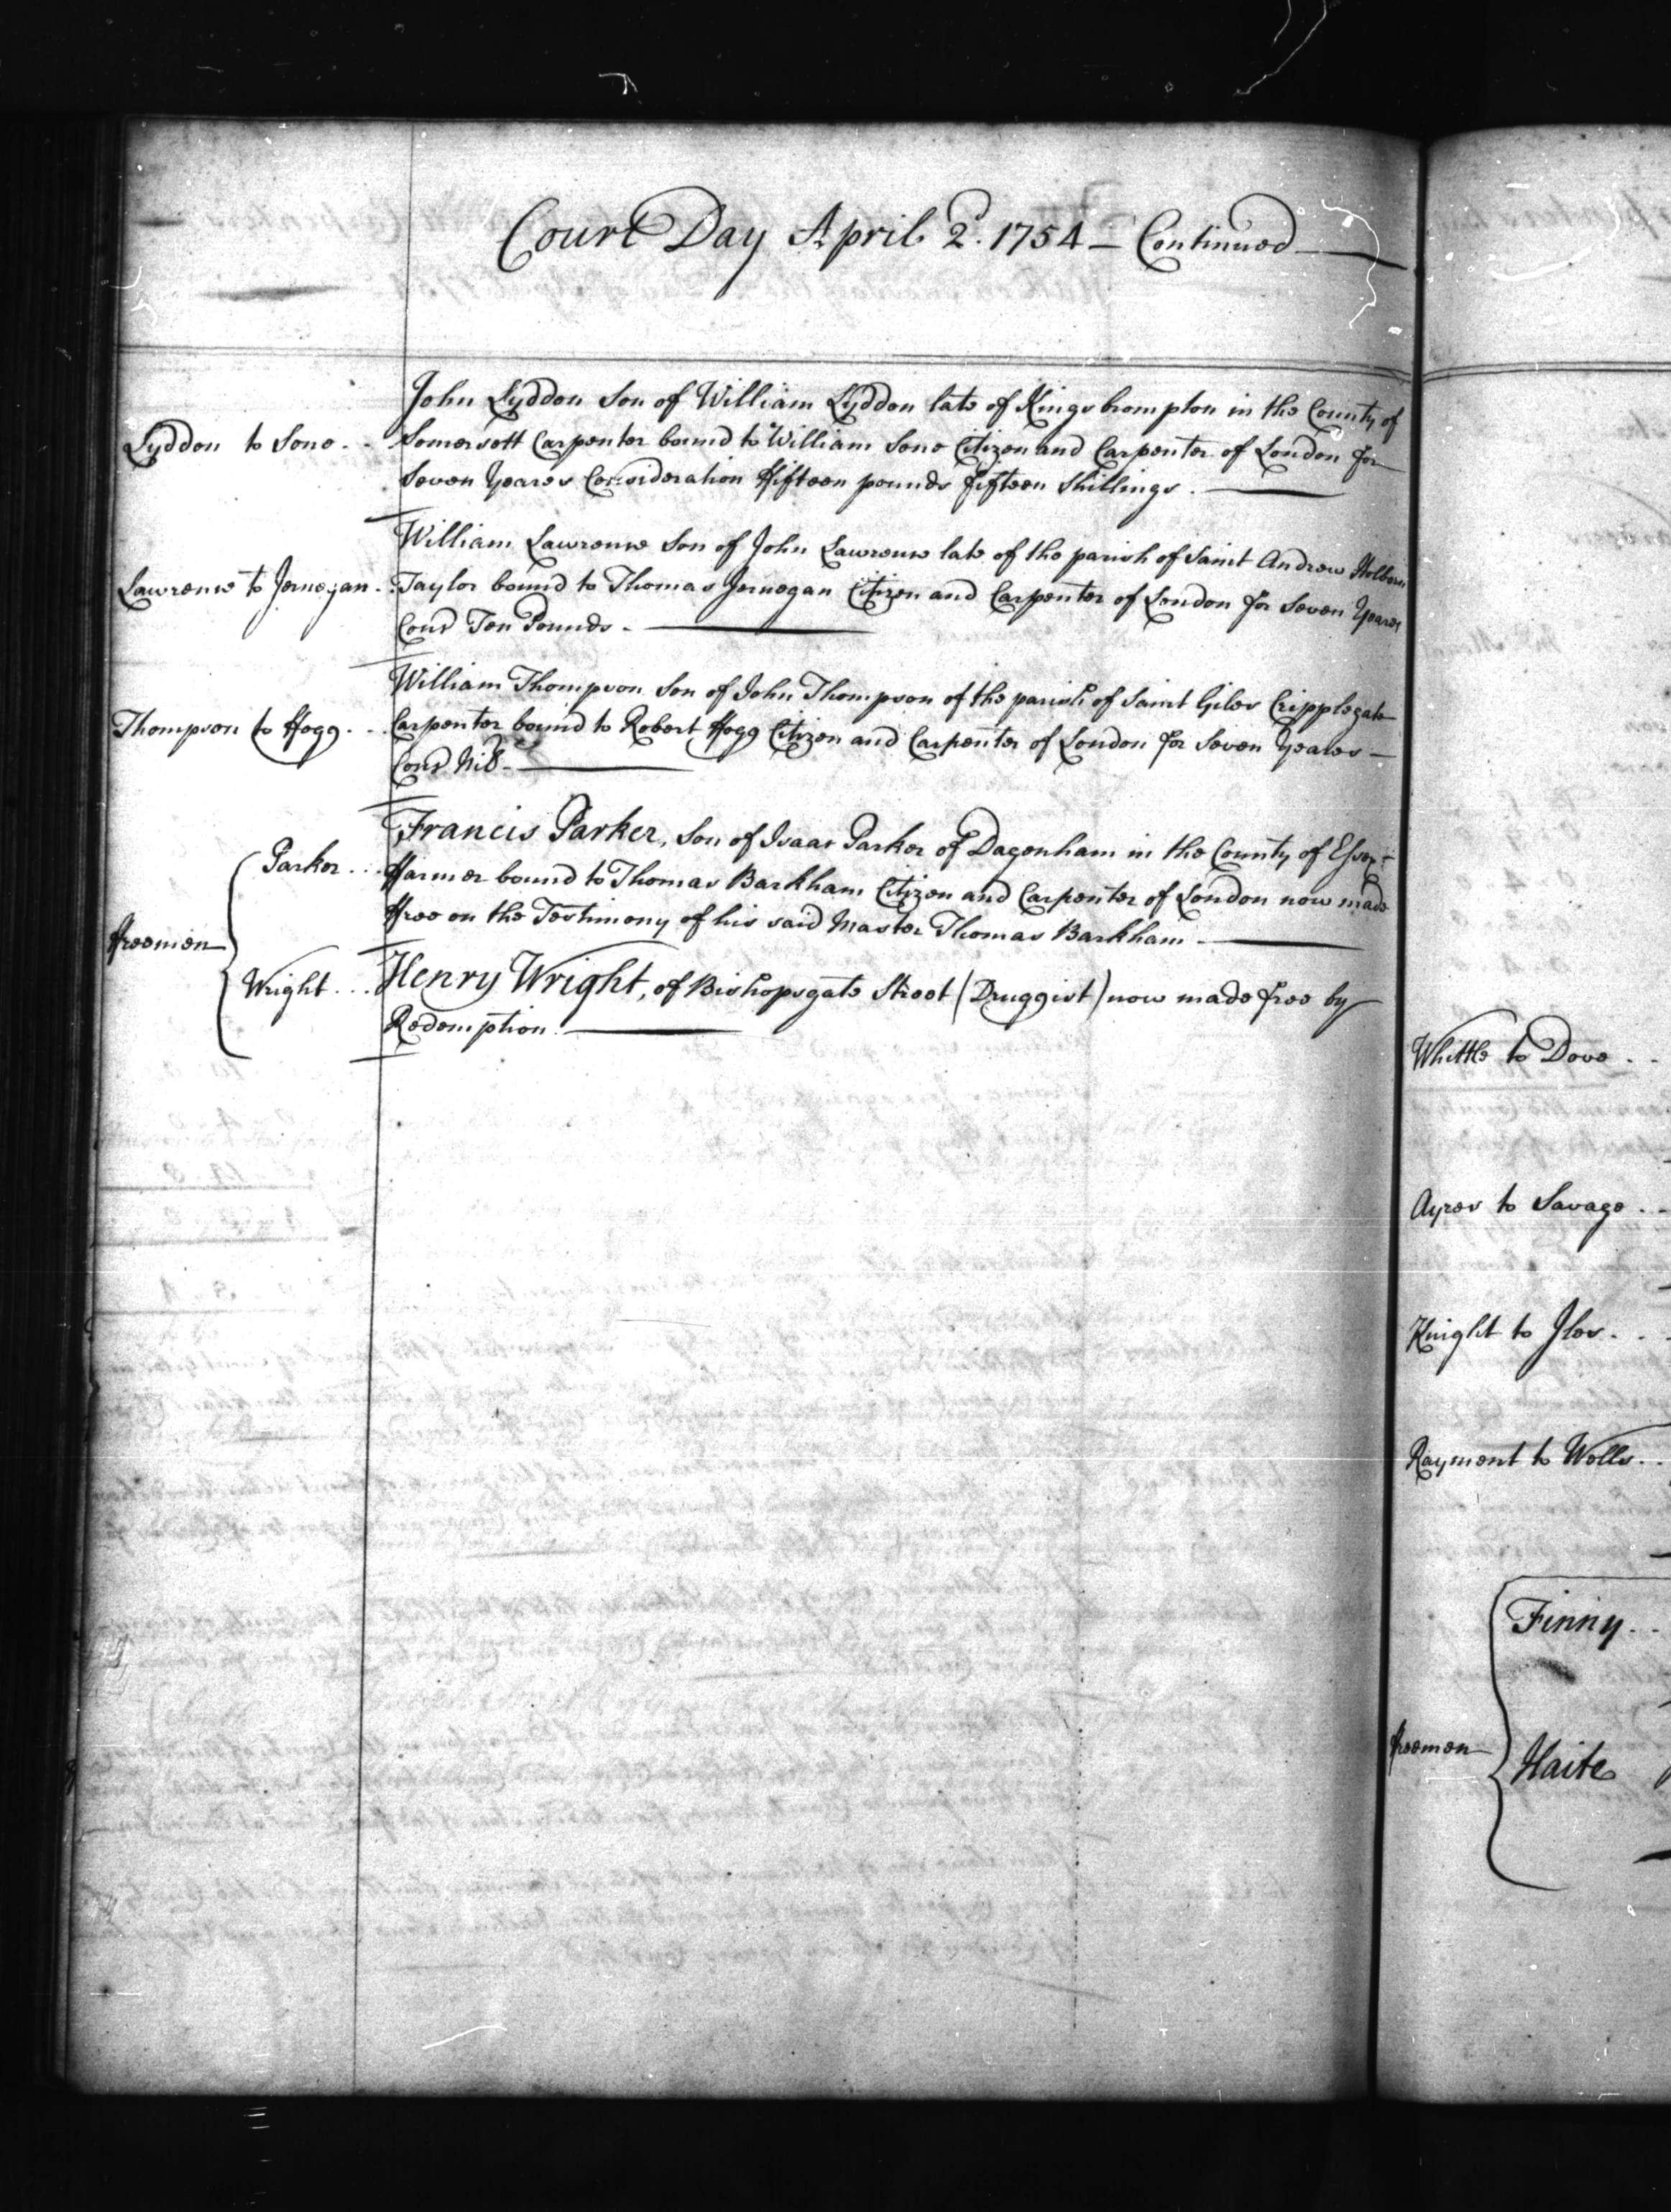 Court Day April 2d. 1754 — Continued
John Lyddon Son of William Lyddon late of Kingsbrompton in the County of
Lyddon to Sone . . Somersett Carpenter bound to William Sone Citizen and Carpenter of London for
Seven Yeares Consideration Fifteen pounds fifteen Shillings .
William Lawrence Son of John Lawrence late of the parish of Saint Andrew Holborn
Lawrence to Jernegan . : Taylor bound to Thomas Jernegan Citizen and Carpenter of London for Seven Yeares
Cons Ten Pounds .
William Thompson Son of John Thompson of the parish of Saint Giles Cripplegate
Thompson to Hogg . . . Carpenter bound to Robert Hogg Citizen and Carpenter of London for Seven Yeares —
Cons Nil .
Francis Parker, Son of Isaac Parker of Dagenham in the County of Essex
Parker . . . Farmer bound to Thomas Barkham Citizen and Carpenter of London now made
Free on the Testimony of his said Master Thomas Barkham .
Freemen
Wright . . . Henry Wright, of Bishopsgate Street (Druggist) now made free by
Redemption .
Whittle to Dove . .
Ayres to Savage . .
Knight to Iles . . .
Rayment to Wells . .
Finny . .
Freemen
Haite